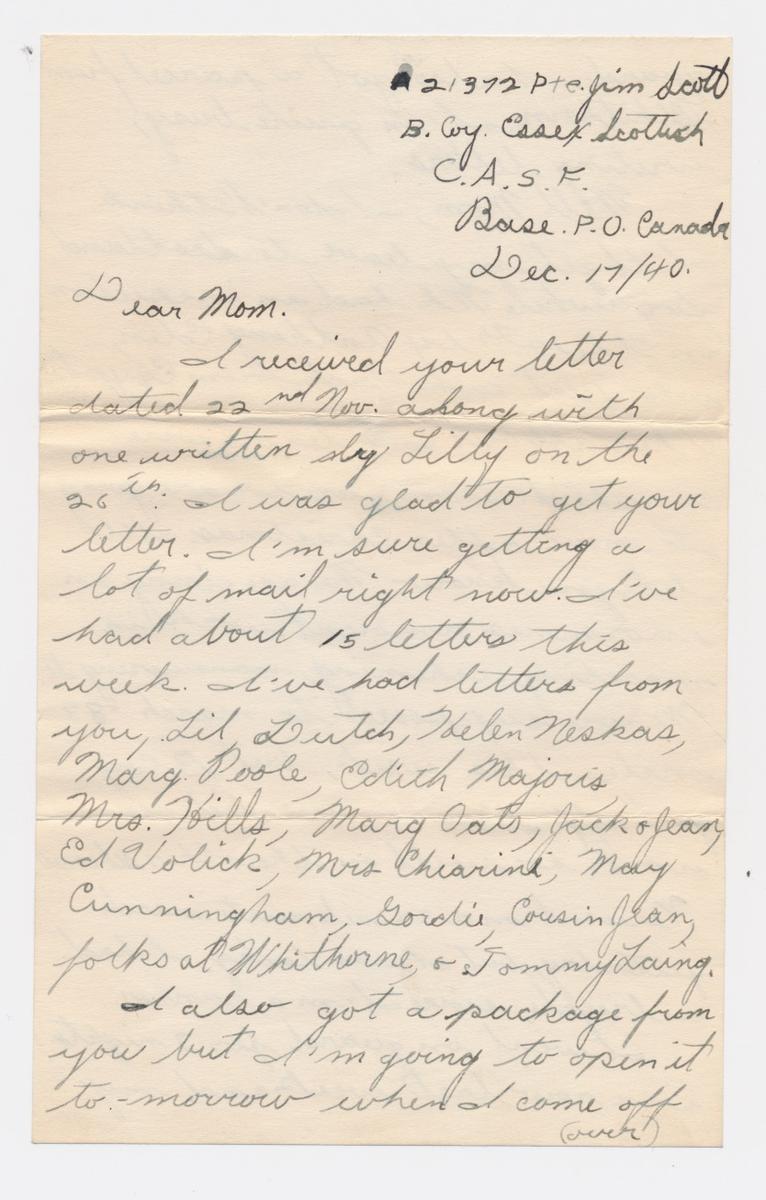 A 21372 Pte. Jim Scott
B. Coy. Essex Scottish
C.A.S.F.
Base. P.O. Canada
Dec. 17/40.
Dear Mom.
I received your letter
dated 22nd Nov. along with
one written by Lilly on the
26th. I was glad to get your
letter. I'm sure getting a
lot of mail right now. I've
had about 15 letters this
week. I've had letters from
you, Lil, Dutch, Helen Neskas,
Marg. Poole, Edith Majoris,
Mrs. Hills, Marg Oats, Jack & Jean,
Ed Volick, Mrs Chiarini, May
Cunningham, Gordie, Cousin Jean,
folks at Whithorne, & Tommy Laing.
I also got a package from
you but I'm going to open it
to-morrow when I come off
(over)